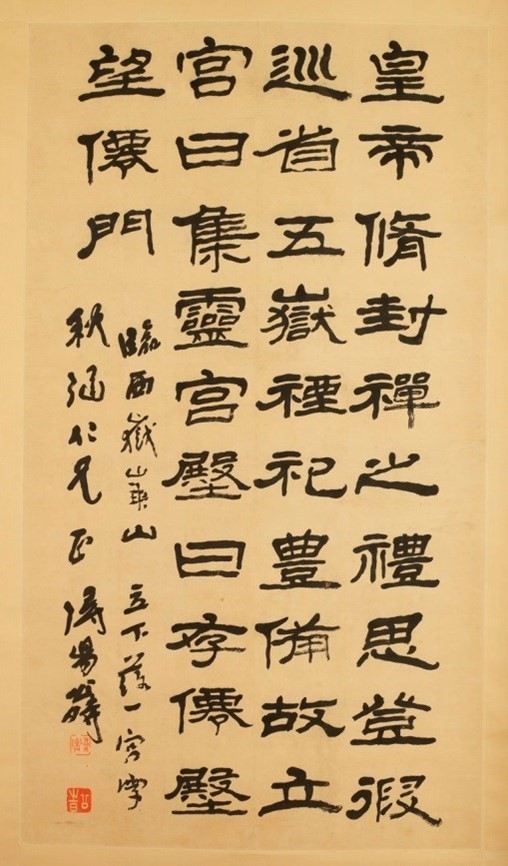 皇帝脩封禪之禮思登假
巡省五嶽禋祀豊備故立
宮曰集靈宮壂曰存僊壂
望僊門
臨西嶽崋山 立下落一宮字
秋涵仁兄正